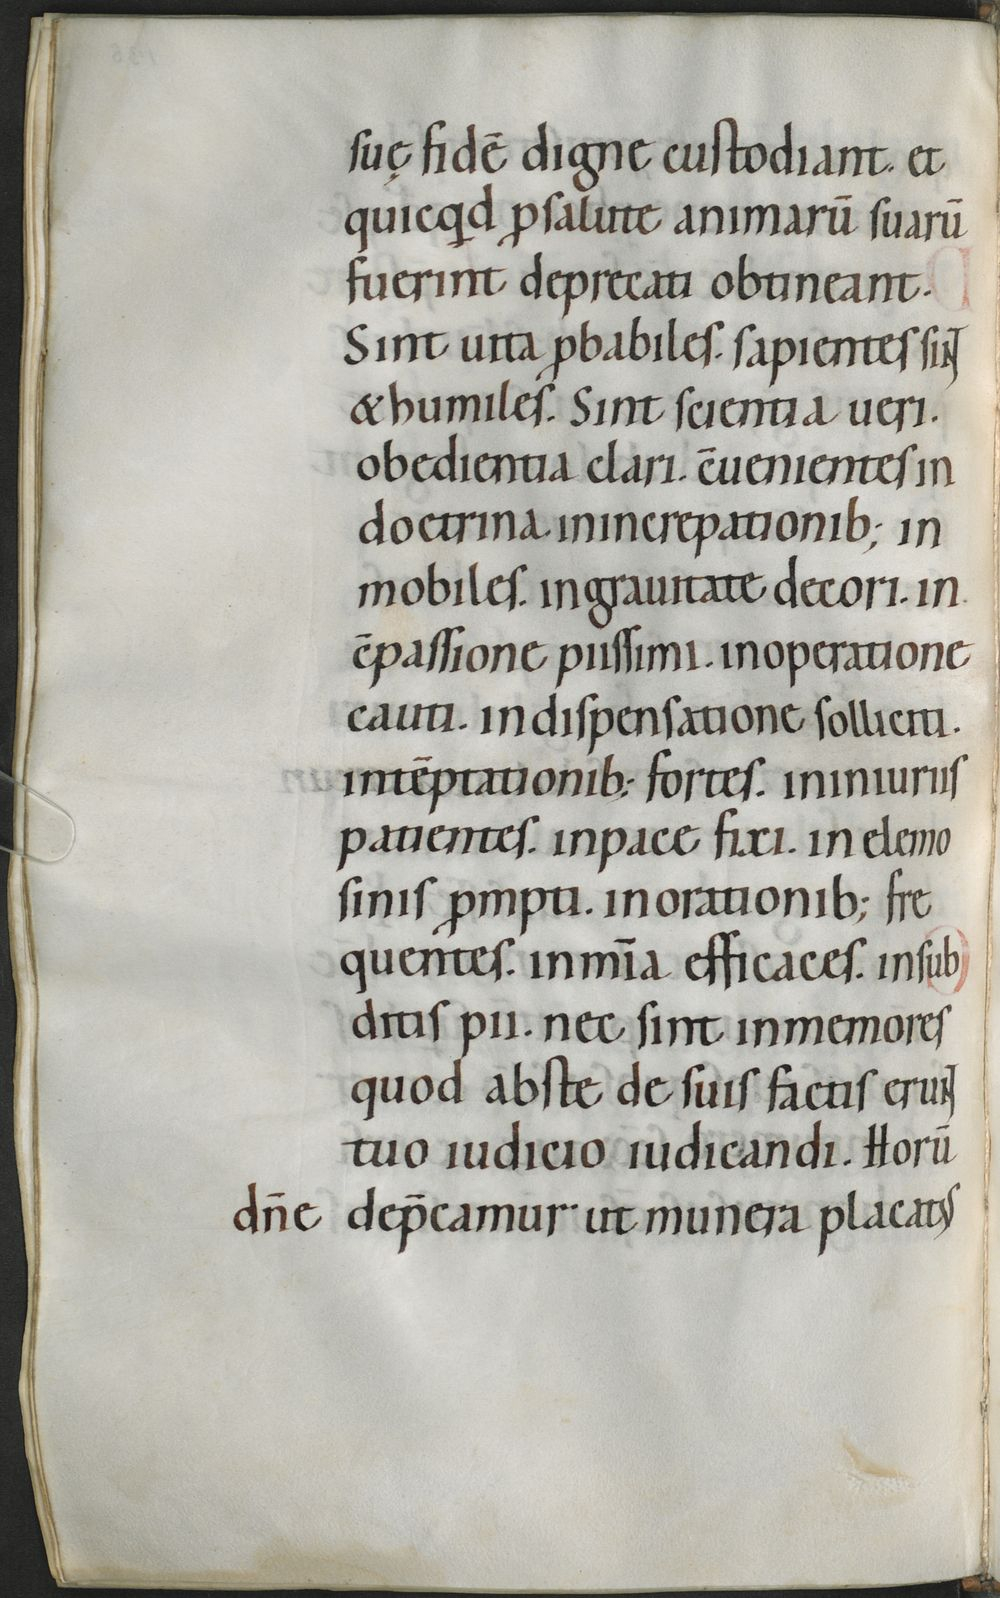 suę fidē digne custodiant. et
quicq̣d ꝓsalute animarū suarū
fuerint deprecati obtineant.
Sint uita ꝓbabiles. sapientes sint
& humiles. Sint scientia ueri.
obedientia clari. c̄uenientes in
doctrina. inincrepationib; in
mobiles. ingrauitate decori. in
c̄passione piissimi. inoperatione
cauti. indispensatione solliciti.
intēptationib; fortes. ininiuriis
patientes. inpace fixi. in elemo
sinis ꝓmpti. inorationib; fre
quentes. inmīa efficaces. insub
ditis pii. nec sint inmemores
quod abste de suis factis erunt
tuo iudicio iudicandi. Horū
dn̄e dep̄camur ut munera placatus